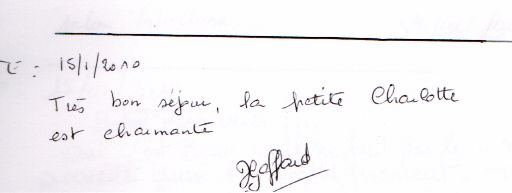 15/1/2010
Très bon séjour, la petite Charlotte
est charmante